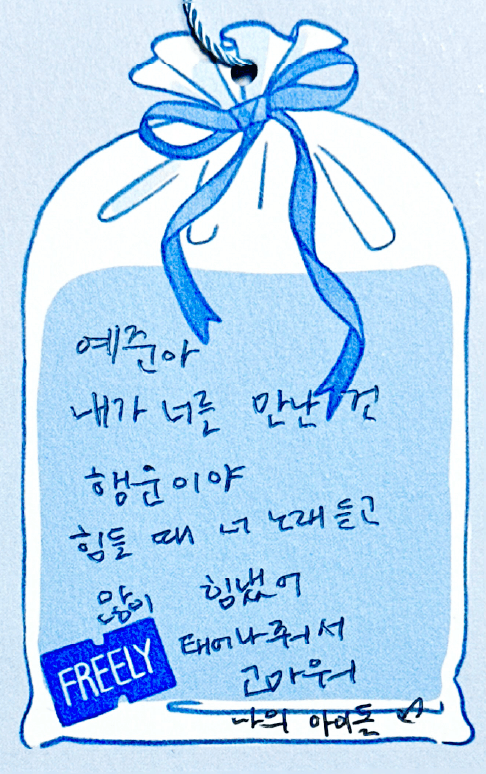 예준아
내가 너를 만난 건
행운이야
힘들 때 너 노래 듣고
많이 힘냈어
태어나줘서
고마워
나의 아이돌
FREELY